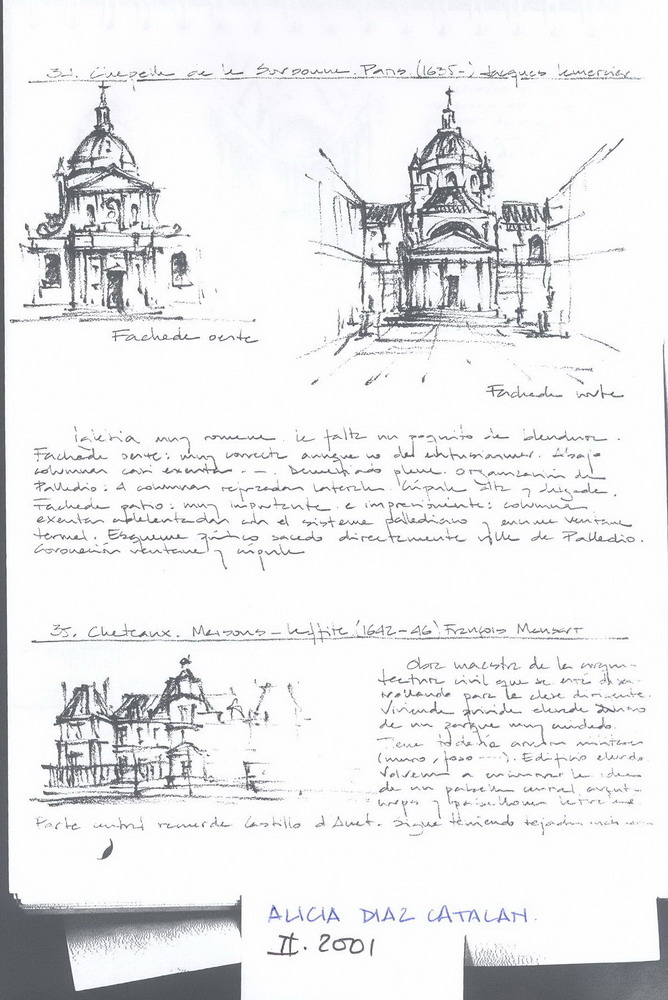 34. Chapelle de la Sorbonne. Paris. (1635-) Jacques Lemercier
Fachada oeste
Fachada norte
Iglesia muy romana. le falta un poquito de
Fachada oeste: muy correcta aunque no del entusiasmar. Abajo
columnas casi exentas --. plena. Organización de
Palladio: 4 columnas laterales. Cúpula alta y delgada.
Fachada patio: muy importante e impresionante: columnas
exentas adelantadas con el sistema palladiano y enorme ventana
termal. Esquema sacado directamente villa de Palladio.
Coronación ventana y cúpula
35. Chateaux. Maisons-Laffite (1642-46) François Mansart
Obra maestra de la arqui-
tectura civil que se está desa-
rrollando para la clase dirigente.
Vivienda privada dentro
de un parque muy cuidado.
Tiene todavía
(muro / foso ----). Edificio
Volvemos a la idea
de un pabellón central,
y pabellones laterales.
Parte central recuerda Castillo d'Anet. Sigue teniendo tejados
ALICIA DIAZ CATALAN.
II. 2001